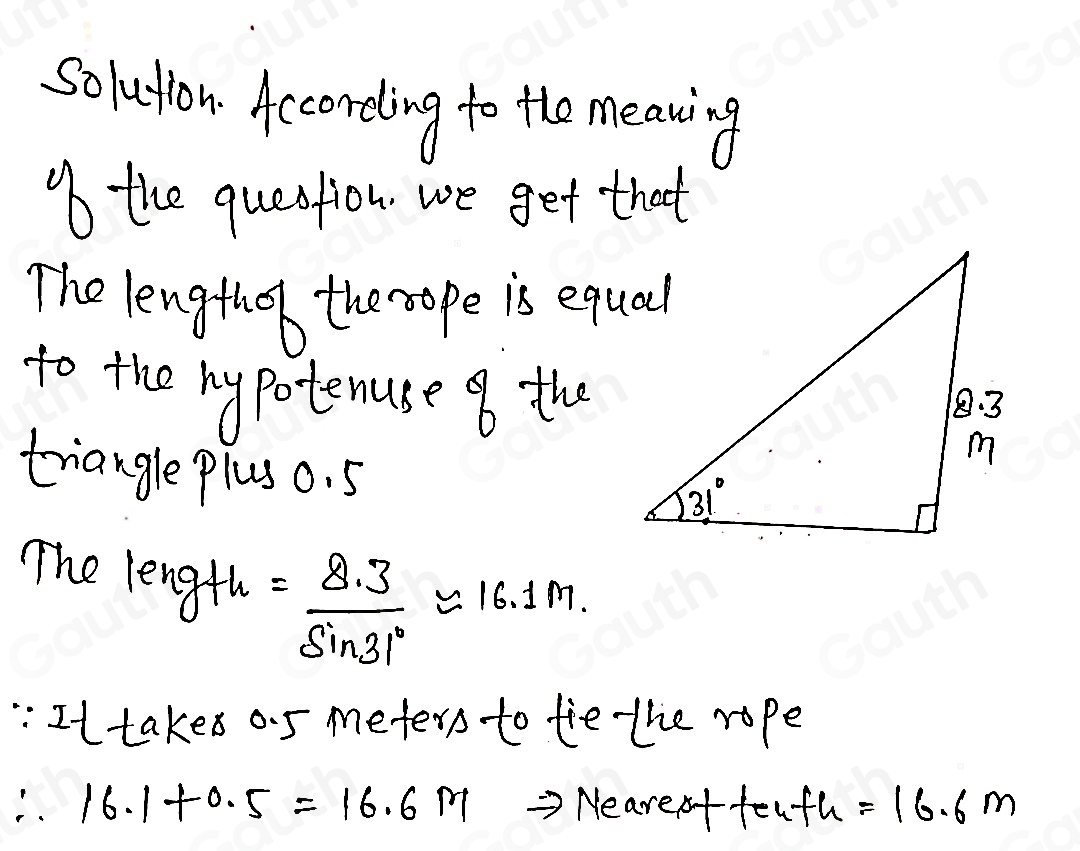 Solution. According to the meaning
of the question. we get that
The length of the rope is equal
to the hypotenuse of the
triangle plus 0.5
8.3
m
31°
The length = 8.3 / Sin31° ≈ 16.1 m.
∵ It takes 0.5 meters to tie the rope
∴ 16.1 + 0.5 = 16.6 M ⇒ Nearest tenth = 16.6 m
Gauth